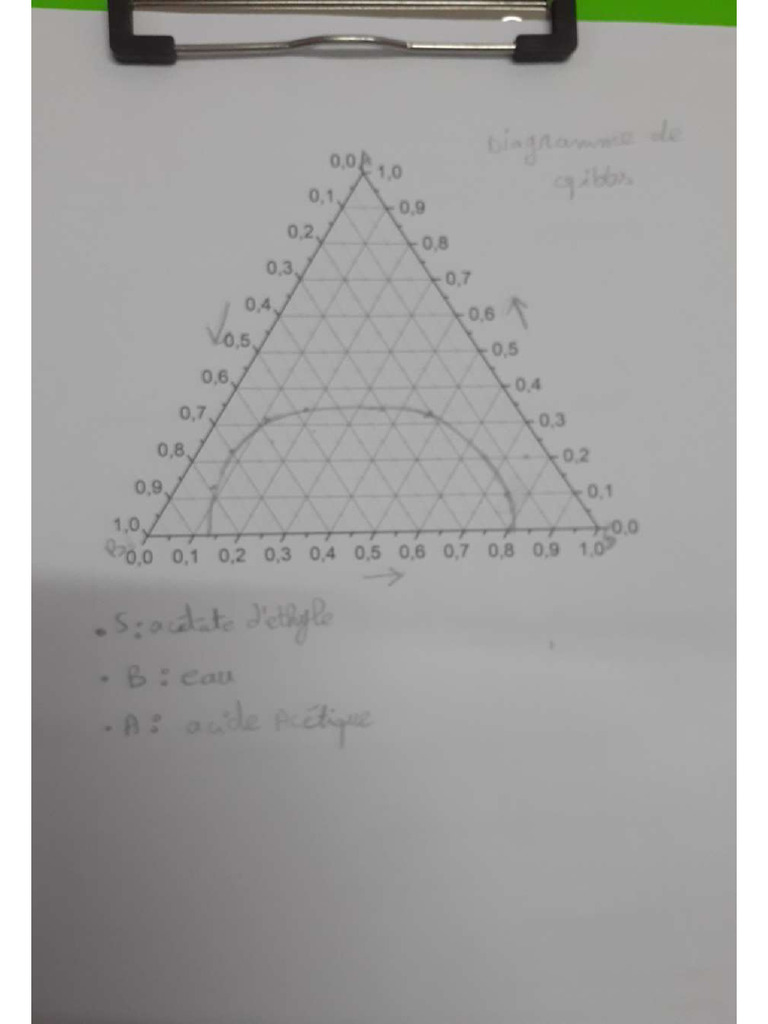 Diagramme de
Gibbs
A
0,0 1,0
0,1 0,9
0,2 0,8
0,3 0,7
0,4 0,6
0,5 0,5
0,6 0,4
0,7 0,3
0,8 0,2
0,9 0,1
1,0 0,0
B S
0,0 0,1 0,2 0,3 0,4 0,5 0,6 0,7 0,8 0,9 1,0
• S : acétate d'ethyle
• B : eau
• A : acide Acétique